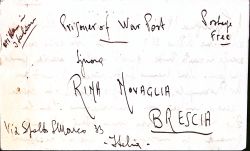 Prisoner of War Post
Postage
Free
Signora
RINA NOVAGLIA
BRESCIA
Via Spalto S. Marco 33
- Italia -